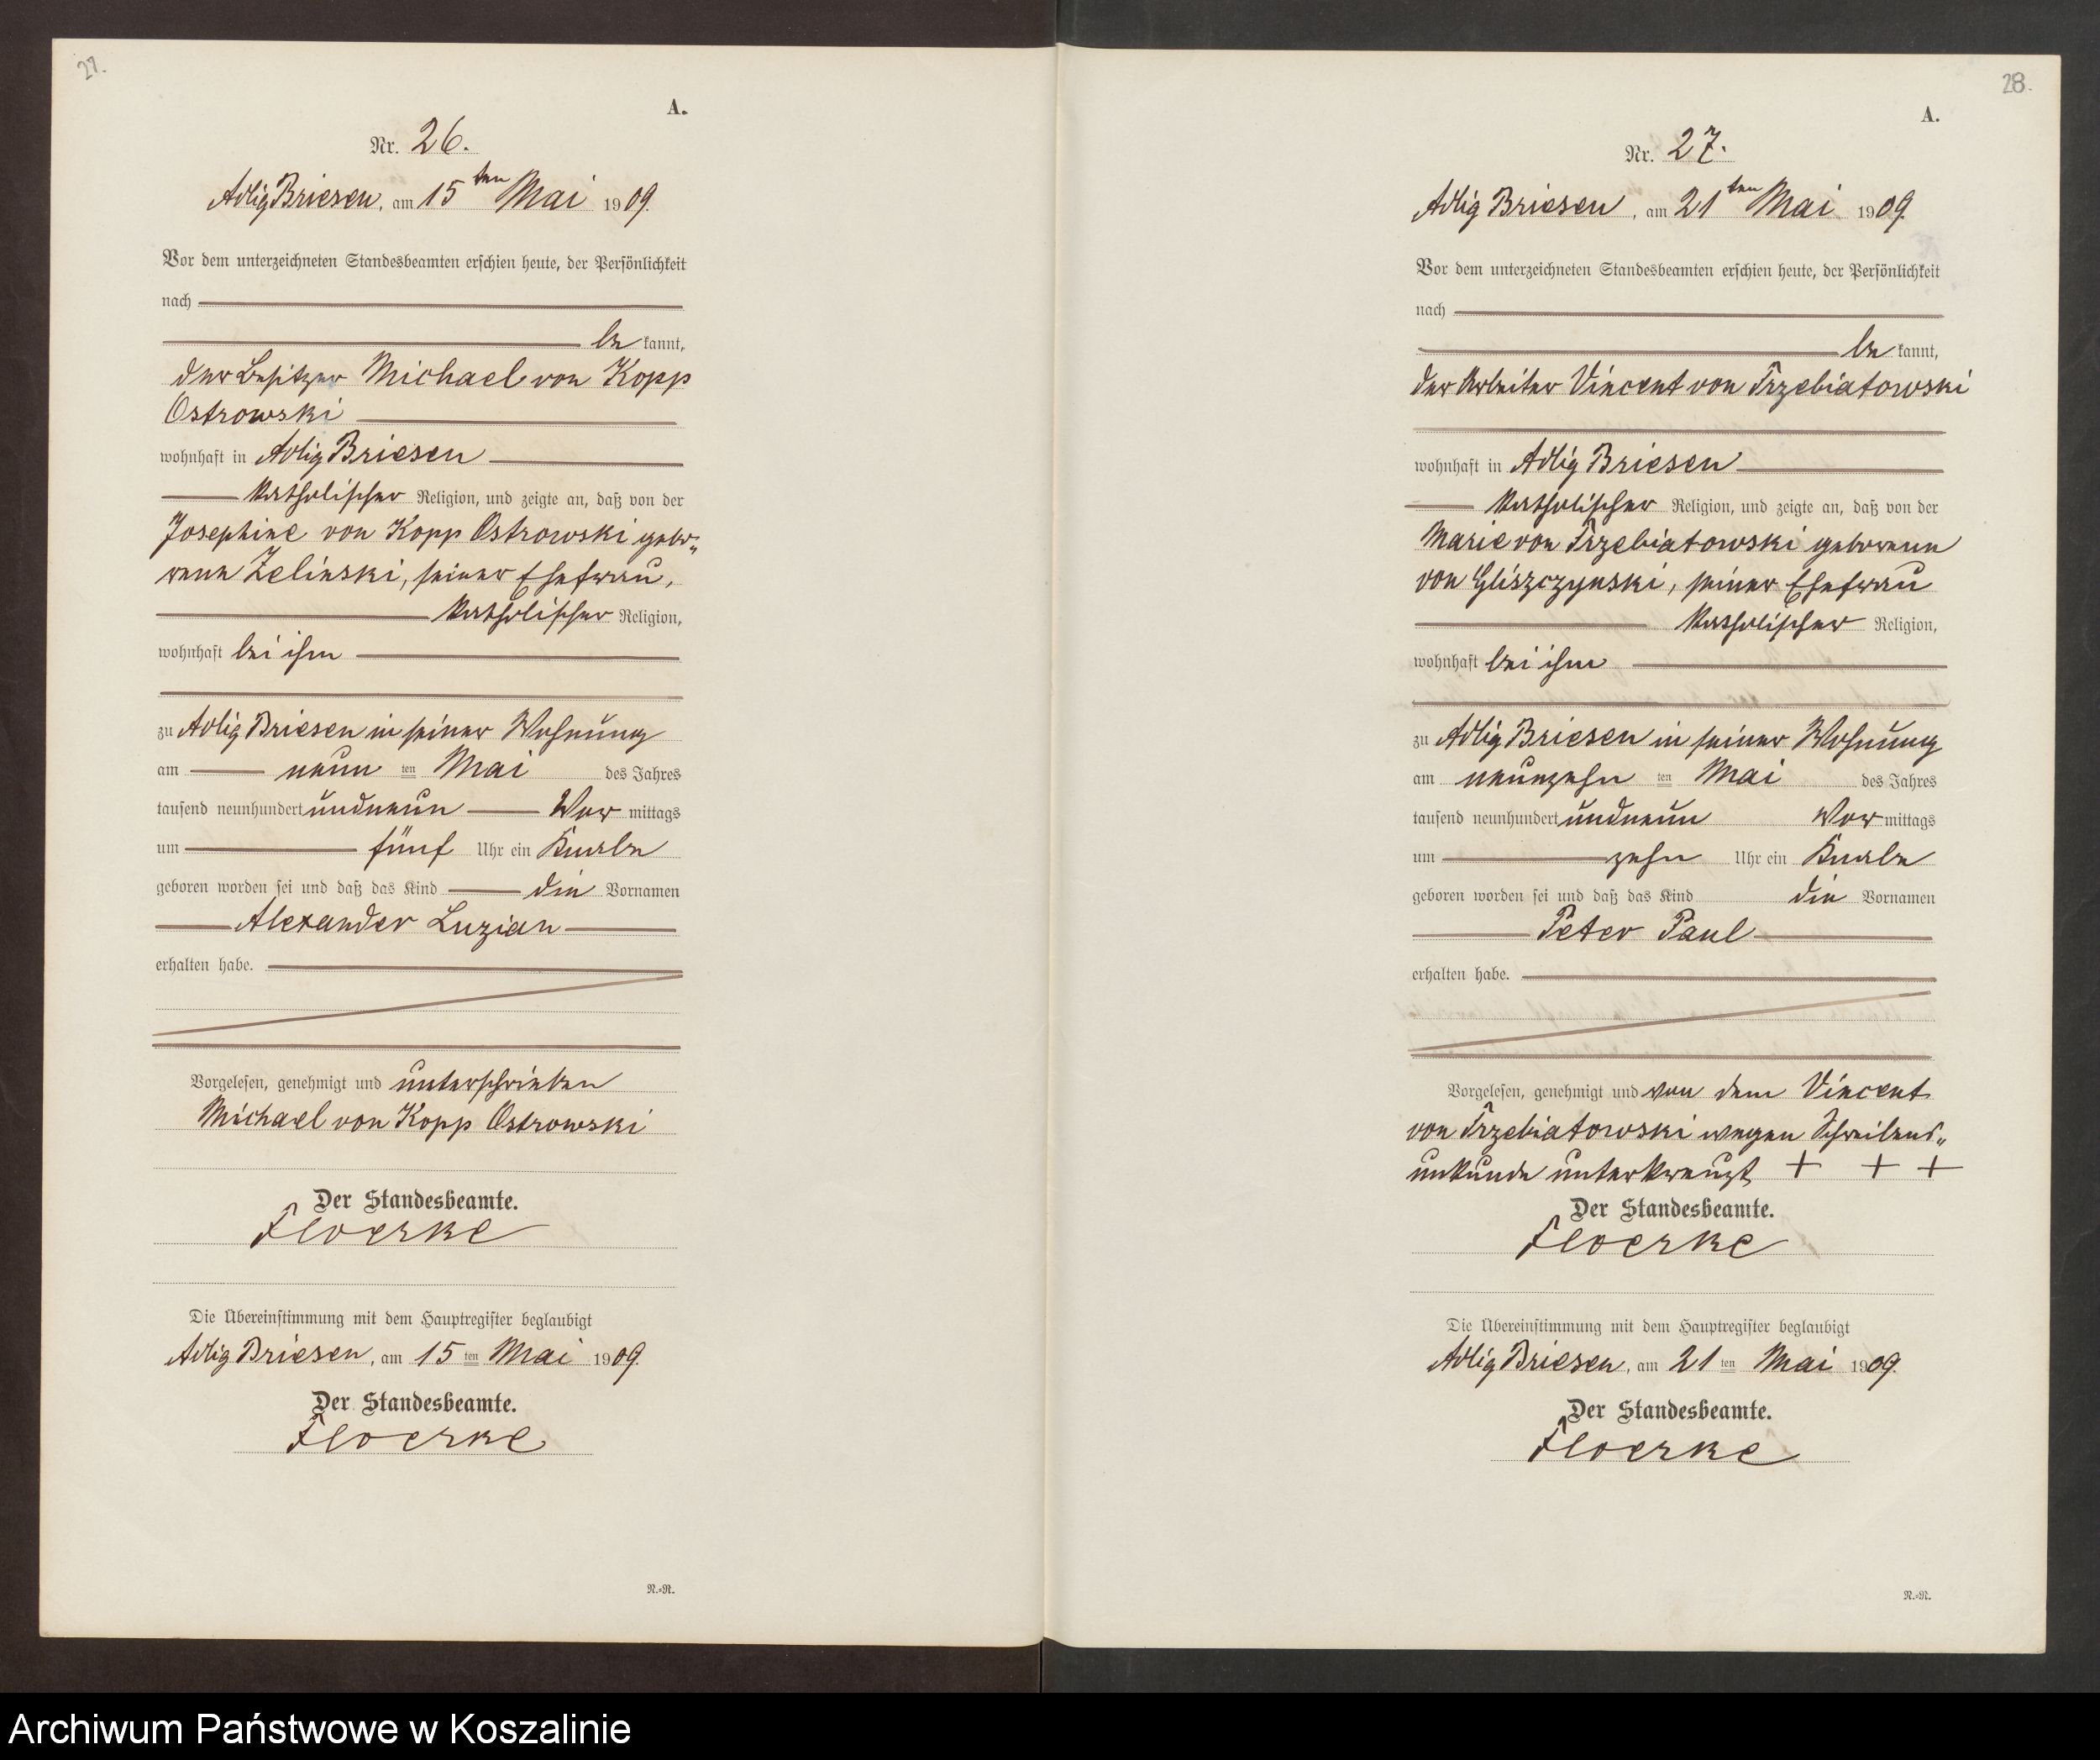 27.
A.
Nr. 26.
Adlig Briesen, am 15ten Mai 1909.
Vor dem unterzeichneten Standesbeamten erschien heute, der Persönlichkeit
nach
be kannt,
der Besitzer Michael von Kopp
Ostrowski
wohnhaft in Adlig Briesen
katholischer Religion, und zeigte an, daß von der
Josephine von Kopp Ostrowski gebo„
rene Zelinski, seiner Ehefrau,
katholischer Religion,
wohnhaft bei ihm
zu Adlig Briesen in seiner Wohnung
am neun ten Mai des Jahres
tausend neunhundert undneun Vor mittags
um fünf Uhr ein Knabe
geboren worden sei und daß das Kind die Vornamen
Alexander Luzian
erhalten habe.
Vorgelesen, genehmigt und unterschrieben
Michael von Kopp Ostrowski
Der Standesbeamte.
Floerke
Die Übereinstimmung mit dem Hauptregister beglaubigt
Adlig Briesen, am 15 ten Mai 1909.
Der Standesbeamte.
Floerke
N.=N.
28.
A.
Nr. 27.
Adlig Briesen, am 21ten Mai 1909.
Vor dem unterzeichneten Standesbeamten erschien heute, der Persönlichkeit
nach
be kannt,
der Arbeiter Vincent von Trzebiatowski
wohnhaft in Adlig Briesen
katholischer Religion, und zeigte an, daß von der
Marie von Trzebiatowski geborenen
von Gliszczynski, seiner Ehefrau
katholischer Religion,
wohnhaft bei ihm
zu Adlig Briesen in seiner Wohnung
am neunzehn ten Mai des Jahres
tausend neunhundert undneun Vor mittags
um zehn Uhr ein Knabe
geboren worden sei und daß das Kind die Vornamen
Peter Paul
erhalten habe.
Vorgelesen, genehmigt und von dem Vincent
von Trzebiatowski wegen Schreibens„
unkunde unterkreuzt + + +
Der Standesbeamte.
Floerke
Die Übereinstimmung mit dem Hauptregister beglaubigt
Adlig Briesen, am 21 ten Mai 1909.
Der Standesbeamte.
Floerke
N.=N.
Archiwum Państwowe w Koszalinie